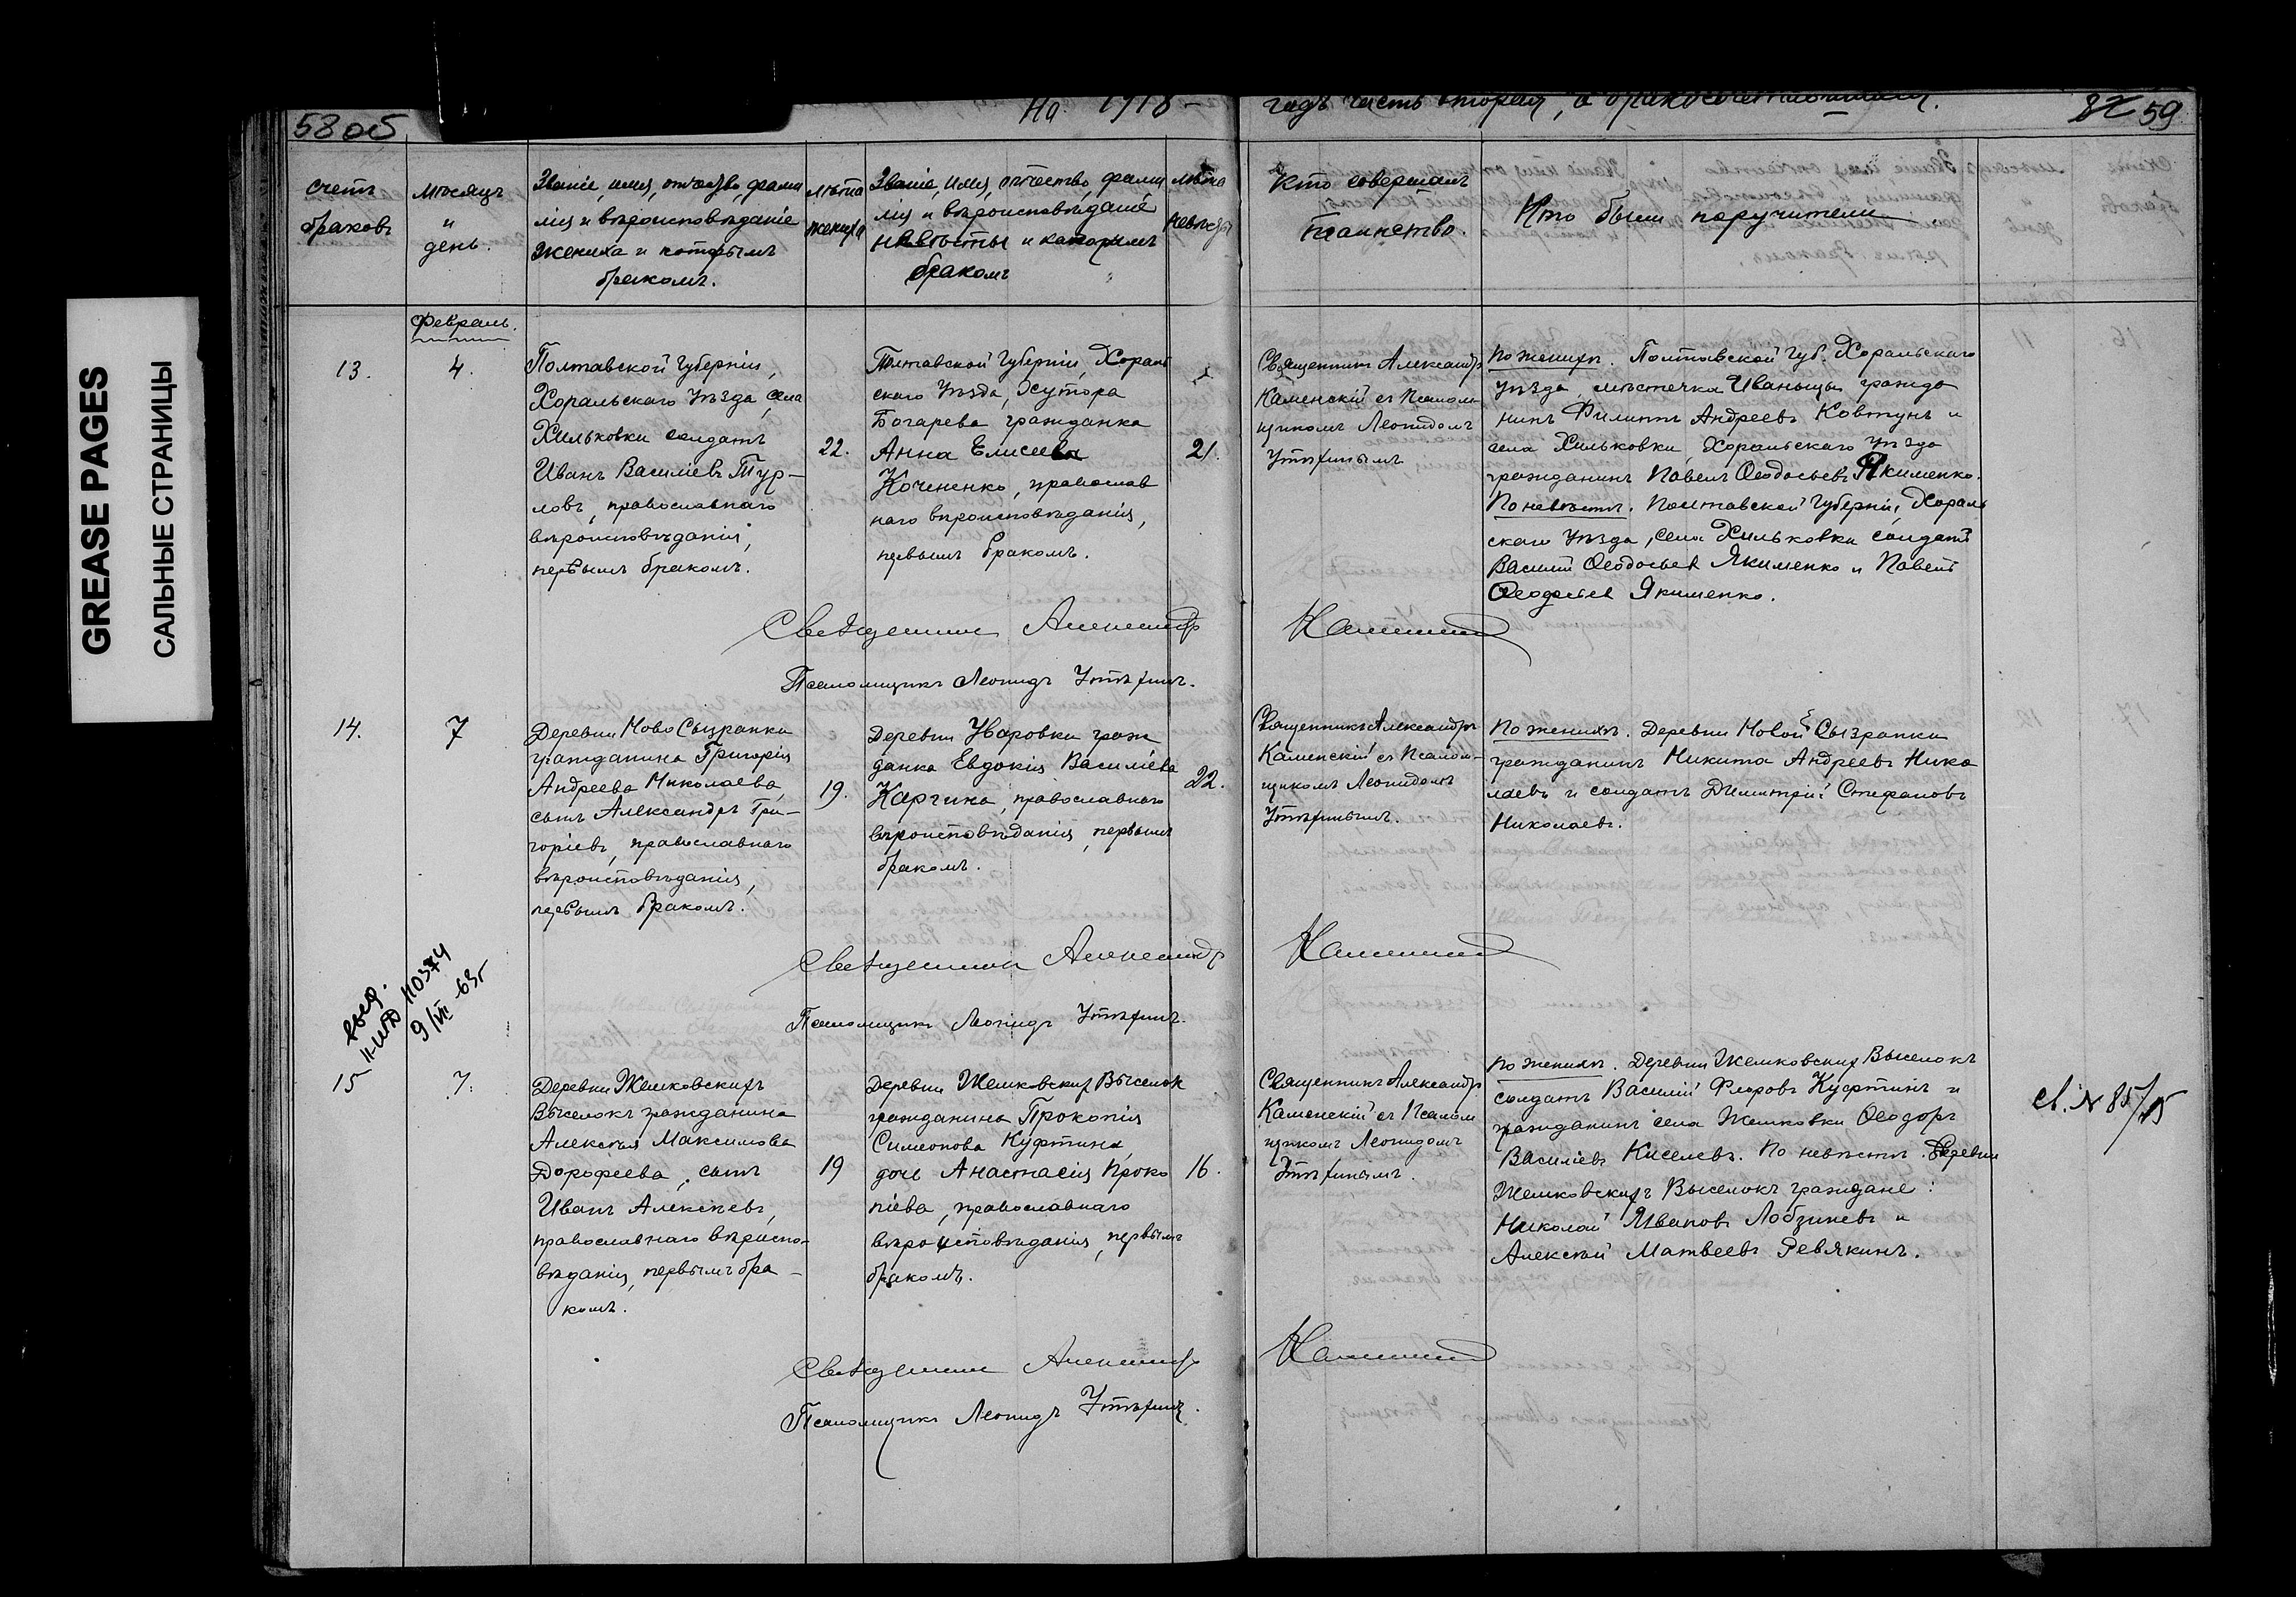 GREASE PAGES
САЛЬНЫЕ СТРАНИЦЫ
58 об
На 1918 –
годъ часть вторая, о бракосочетавшихся.
59
Счетъ
браковъ
Мѣсяцъ
и
день.
Званіе, имя, отчество, фами
лія и вѣроисповѣданіе
жениха и которымъ
бракомъ.
Лѣта
жениха
Званіе, имя, отчество, фами
лія и вѣроисповѣданіе
невѣсты и которымъ
бракомъ
Лѣта
невѣсты
Кто совершалъ
таинство.
Кто были поручители
Февраль.
13.
4.
Полтавской Губерніи,
Хорольскаго Уѣзда, села
Хильковки солдатъ
Иванъ Василіевъ Тур–
ловъ, православнаго
вѣроисповѣданія,
первымъ бракомъ.
22.
Полтавской Губерніи, Хороль
скаго Уѣзда, Хутора
Богарева гражданка
Анна Елисеева
Кочененко, православ
наго вѣроисповѣданія,
первымъ бракомъ.
21.
Священникъ Александръ
Каменскій съ Псалом-
щикомъ Леонидомъ
Утѣхинымъ
По женихѣ. Полтавской Губ. Хорольскаго
Уѣзда, мѣстечка Иваницы гражда
нинъ Филиппъ Андреевъ Ковтунъ и
села Хильковки, Хорольскаго Уѣзда
гражданинъ Павелъ Ѳеодосьевъ Якименко.
По невѣстѣ. Полтавской Губерніи, Хороль
скаго Уѣзда, села Хильковки солдатъ
Василій Ѳеодосьев Якименко и Павелъ
Ѳеодосьев Якименко.
Священникъ Александръ Каменскій
Псаломщикъ Леонидъ Утѣхинъ.
14.
7
Деревни Ново Сызранки
гражданина Григорія
Андреева Николаева,
сынъ Александръ Гри–
горіевъ, православнаго
вѣроисповѣданія,
первымъ бракомъ.
19.
Деревни Уваровки граж
данка Евдокія Василіева
Каргина, православнаго
вѣроисповѣданія, первымъ
бракомъ.
22.
Священникъ Александръ
Каменскій съ Псалом-
щикомъ Леонидомъ
Утѣхинымъ.
По женихѣ. Деревни Новой Сызранки
гражданинъ Никита Андреевъ Нико
лаевъ и солдатъ Димитрій Стефановъ
Николаевъ.
Священникъ Александръ Каменскій
Псаломщикъ Леонидъ Утѣхинъ.
15
7.
Деревни Жемковскихъ
Выселокъ гражданина
Алексѣя Максимова
Дорофеева, сынъ
Иванъ Алексѣевъ,
православнаго вѣриспо-
вѣданія, первымъ бра–
комъ.
19
Деревни Жемковских Выселок
гражданина Прокопія
Симеонова Куфтина,
дочь Анастасія Проко
піева, православнаго
вѣроисповѣданія, первымъ
бракомъ.
16.
Священникъ Александръ
Каменскій съ Псалом
щикомъ Леонидомъ
Утѣхинымъ.
По женихѣ. Деревни Жемковских Выселокъ
солдатъ Василій Флоровъ Куфтинъ и
гражданинъ села Жемковки Ѳеодоръ
Василіевъ Киселевъ. По невѣстѣ. Деревни
Жемковскихъ Выселокъ граждане:
Николай Ивановъ Лобзиневъ и
Алексѣй Матвеевъ Ревякинъ.
Священникъ Александръ Каменскій
Псаломщикъ Леонидъ Утѣхинъ.